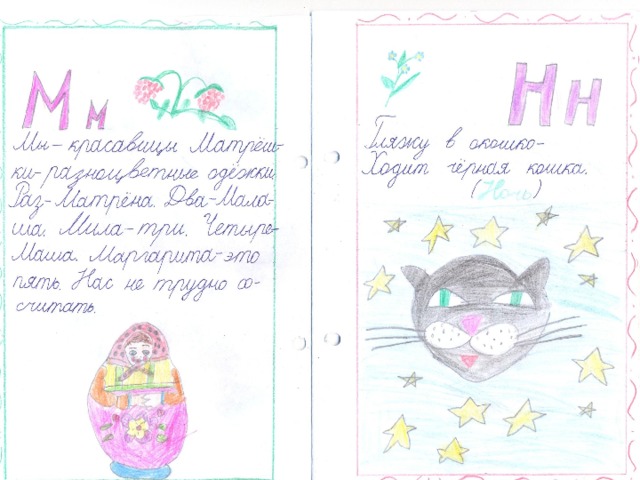 М м
Мы-красавицы Матрёш-
ки-разноцветные одёжки.
Раз-Матрёна. Два-Мала-
ша. Мила-три. Четыре-
Маша. Маргарита-это
пять. Нас не трудно со-
считать.
Н н
Гляжу в окошко-
Ходит чёрная кошка.
(Ночь)